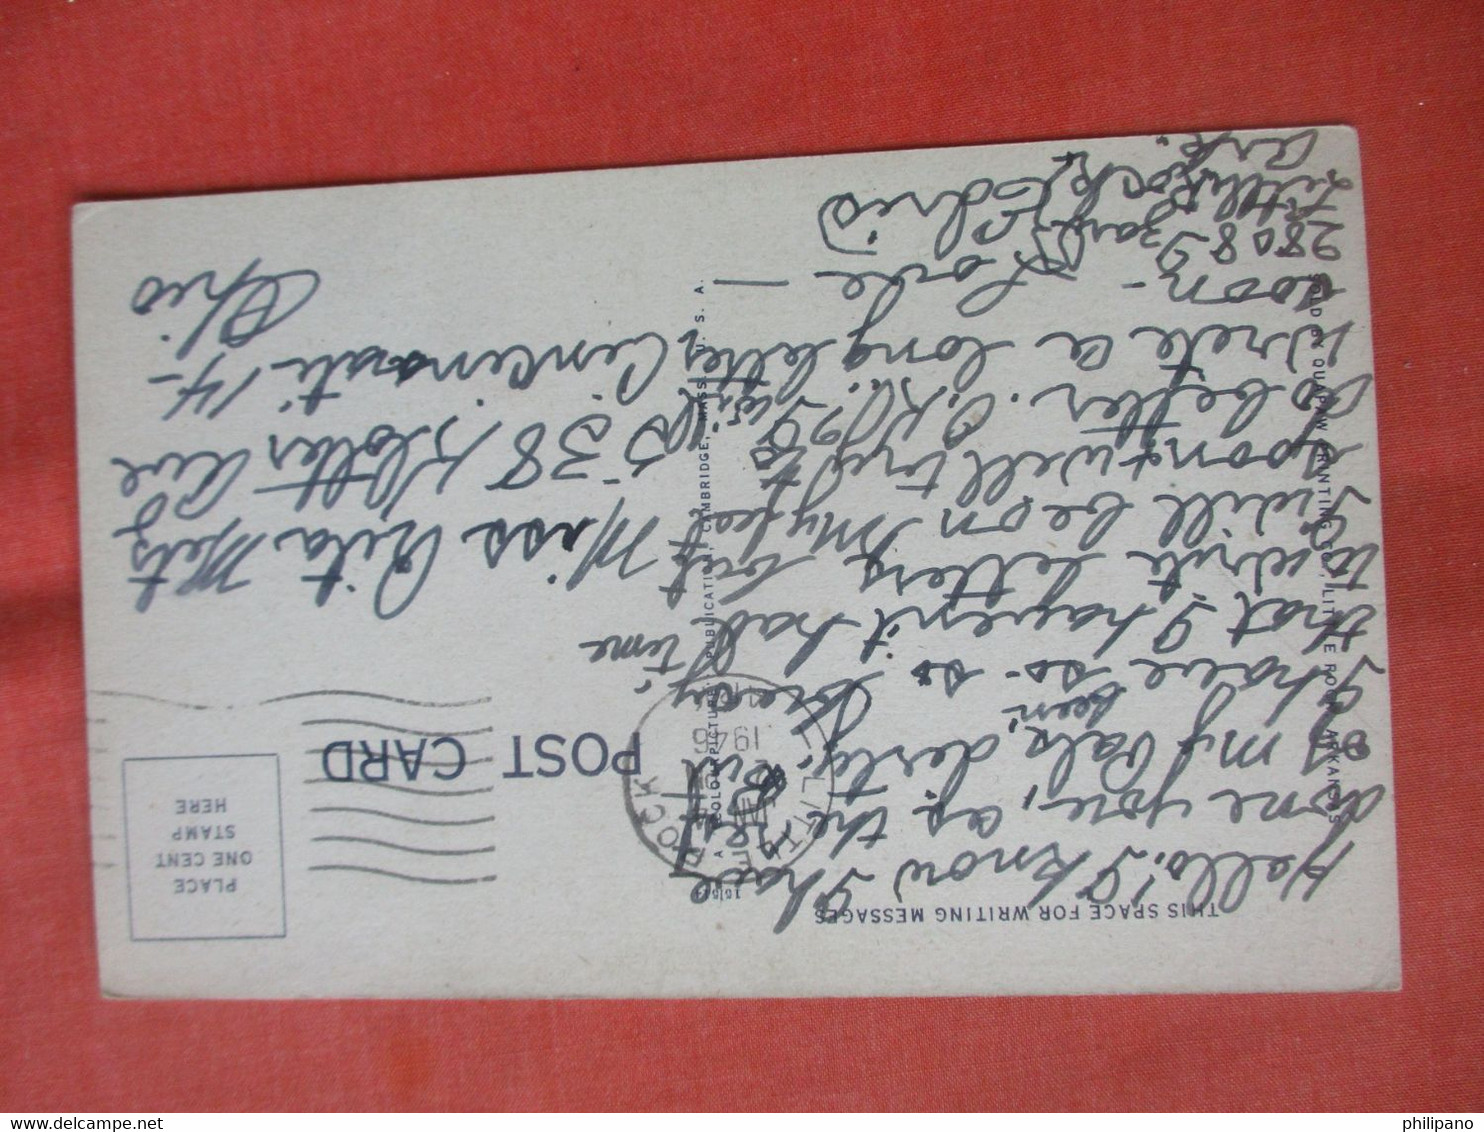 THIS SPACE FOR WRITING MESSAGES
Hello! I know I have
done you, as the
my Pals, dirty. But
I have been so busy
that I haven't had time
to write letters but
I will be on my feet
soon + will try to
do better. O.K. I will
write a long letter
soon - Love
Edris
2808
Little Rock
Ark.
SOLD BY QUAPAW PRINTING CO., LITTLE ROCK, ARKANSAS
A "COLOURPICTURE" PUBLICATION, CAMBRIDGE, MASS., U. S. A.
LITTLE ROCK
194
POST CARD
PLACE
ONE CENT
STAMP
HERE
Miss Rita Metz
538 Klotter Ave
Cincinnati 14-
Ohio
philipano